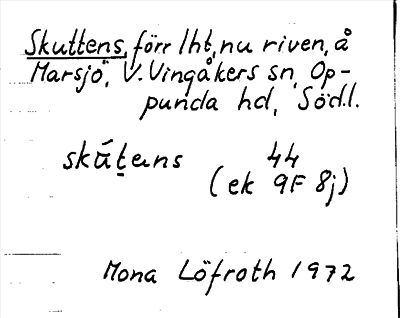 Skuttens, förr lht, nu riven, å
Marsjö, V. Vingåkers sn, Op-
punda hd, Södl.
skú̄t̠ens 44
(ek 9F 8j)
Mona Löfroth 1972